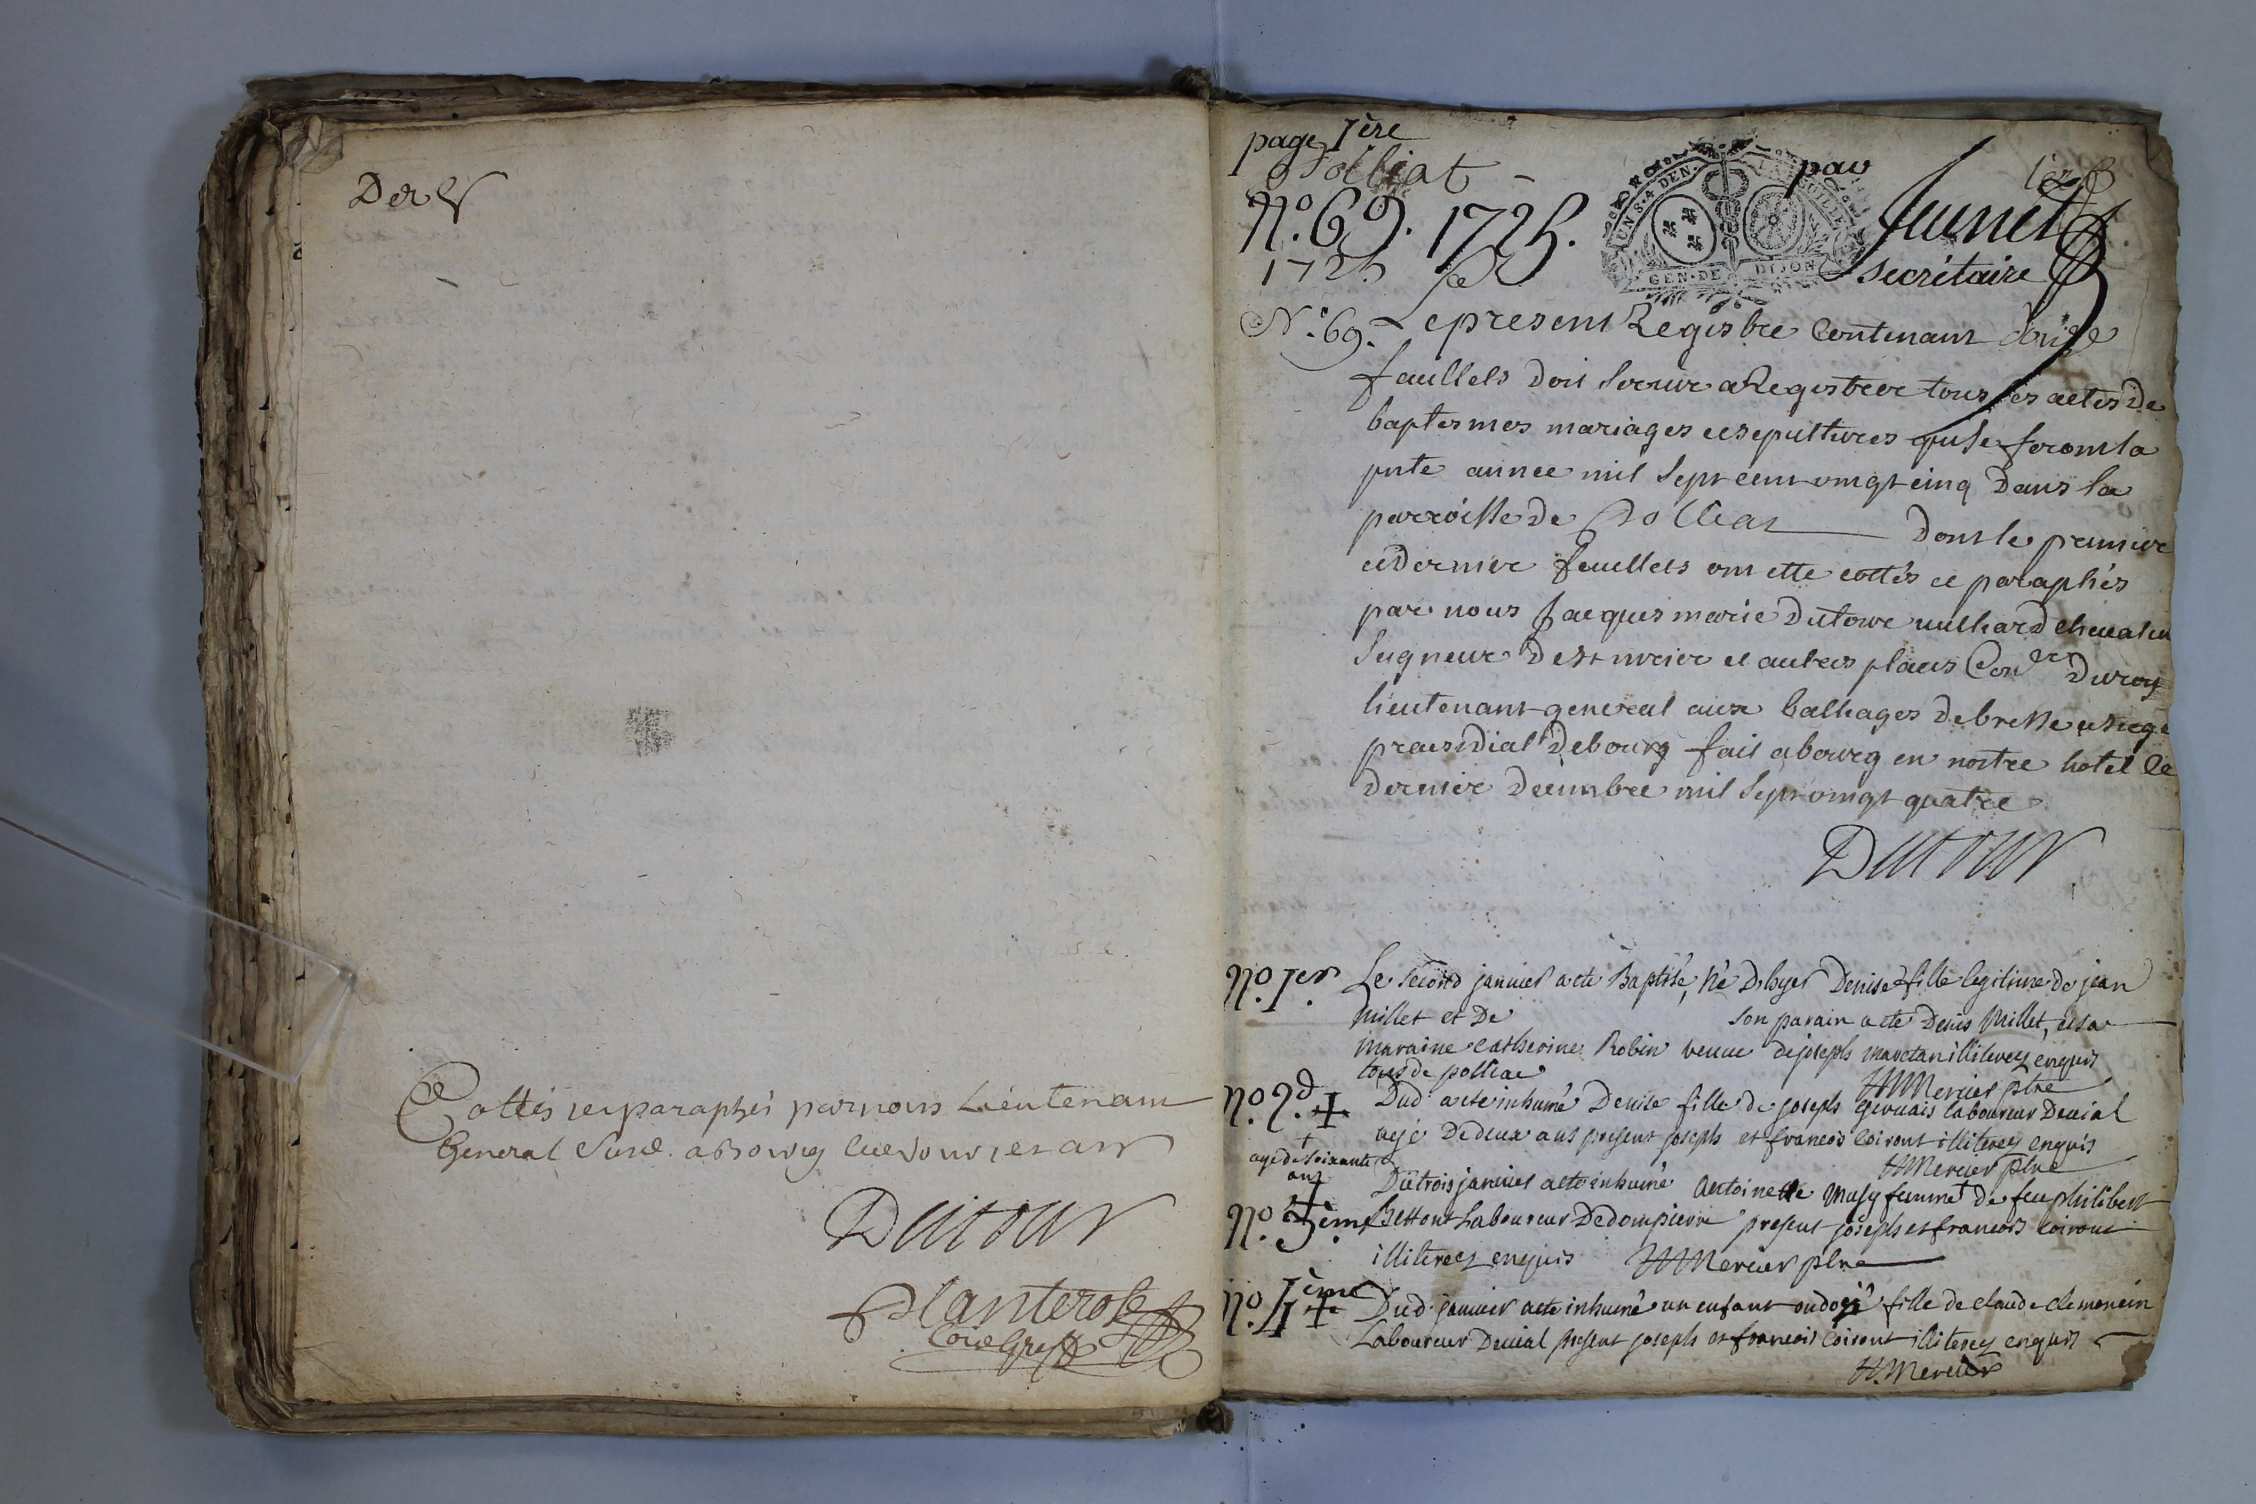 Der
Cottés et paraphés par nous Lieutenant
General Susd. a Bourg led. jour et an
Dutour
Planterose
page 1ère
Polliat
par
N.º 69. 1725.
Junet
secrétaire
1725
UN S. 4 DEN.
GEN. DE DIJON
Nº. 69. Le present Registre Contenant douze
feuillets doit servir a Registrer tous les actes de
baptesmes mariages et sepultures qui se feront la
pnte année mil sept cent vingt cinq dans la
parroisse de Polliat dont le premier
et dernier feuillets ont esté cottés et paraphés
par nous Jacques marie Dutour vulliard chevalier
Seigneur de St nizier et autres places Conˡᵉʳ Du roy
lieutenant general aux balliages de bresse et siege
præsidial de bourg fait a bourg en nostre hotel le
dernier decembre mil sept vingt quatre
Dutour
N.º 1er Le second janvier a eté Baptisé, né D'hyer Denise fille legitime de jean
Millet et De son parain a eté Denis Millet, et sa
maraine catherine Robin veuve de joseph illiterez enquis
tous de polliat
H Mercier ptre
N.º 2.d + Dud. a eté inhumé Denise fille de joseph Gervais laboureur Devial
agé De deux ans present joseph et francois Coiront illiterez enquis
H Mercier ptre
+ agé de soixante
ans
Du trois janvier a eté inhumé Antoinette Musy femme + De feu philibert
N.º 3ème + Bettont Laboureur De dompierre present joseph et francois Coiront
illiterez enquis H Mercier ptre
N.º 4ème + Dud. janvier a eté inhumé un enfant ondoyé fille de claude clemencin
Laboureur Devial present joseph et francois Coiront illiterez enquis
H. Mercier